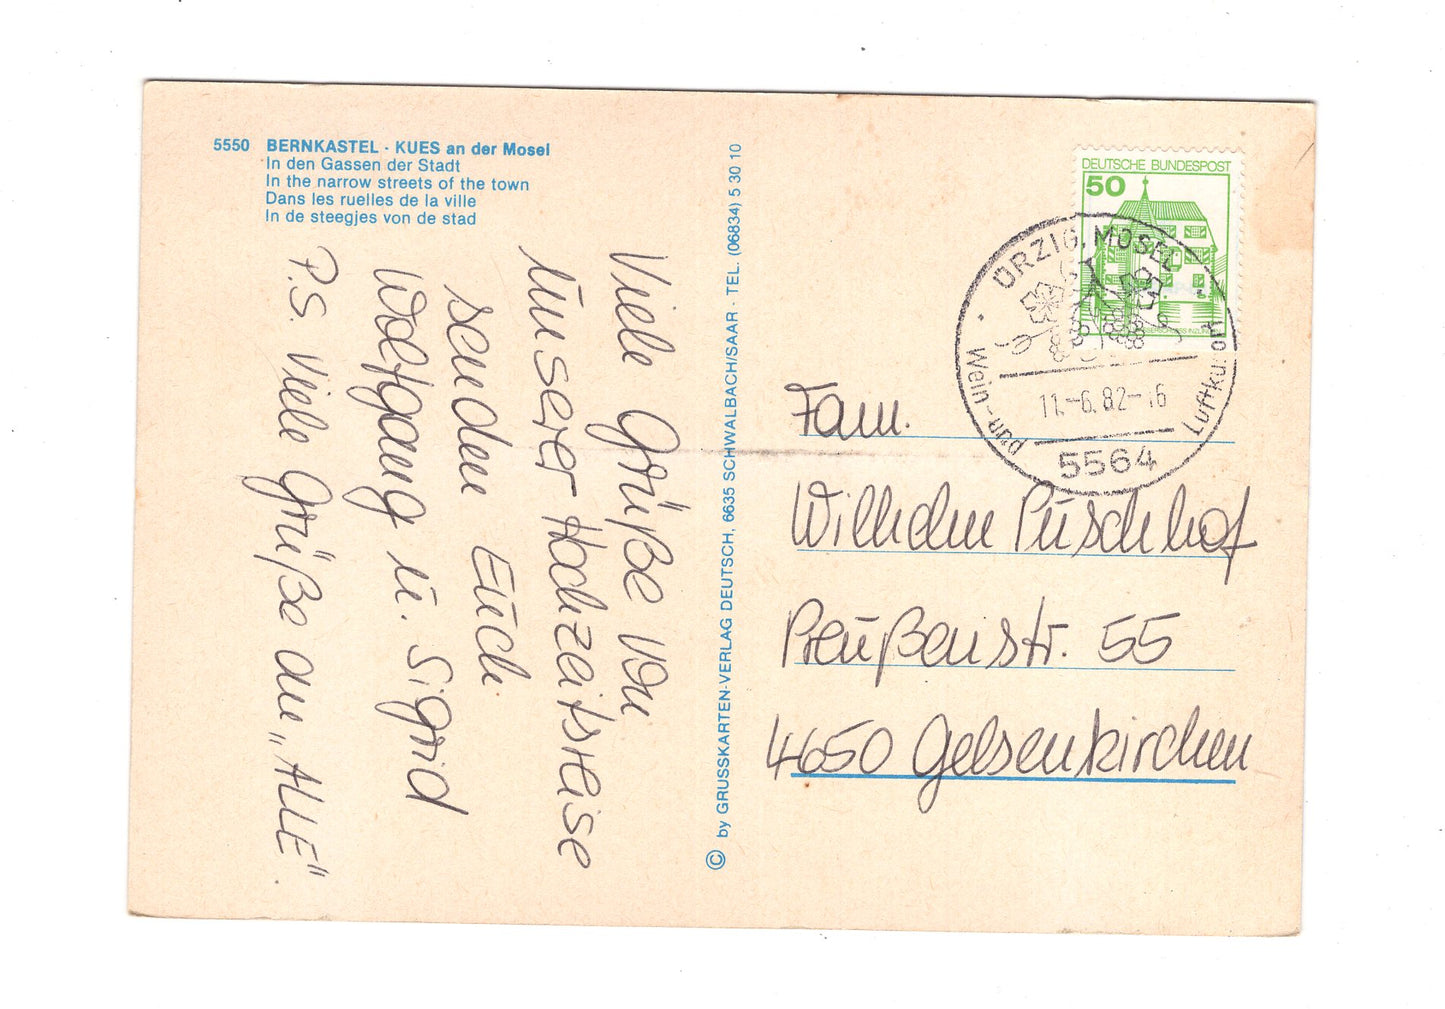 5550 BERNKASTEL · KUES an der Mosel
In den Gassen der Stadt
In the narrow streets of the town
Dans les ruelles de la ville
In de steegjes von de stad
Viele Grüße von
unserer Hochzeitsreise
senden Euch
Wolfgang u. Sigrid
P.S. Viele Grüße an „ALLE".
© by GRUSSKARTEN-VERLAG DEUTSCH, 6635 SCHWALBACH/SAAR · TEL. (06834) 5 30 10
DEUTSCHE BUNDESPOST
50
ÜRZIG, MOSEL
Wein- und Luftkurort
11.-6.82-16
5564
Fam.
Wilhelm Püschhof
Preußenstr. 55
4650 Gelsenkirchen